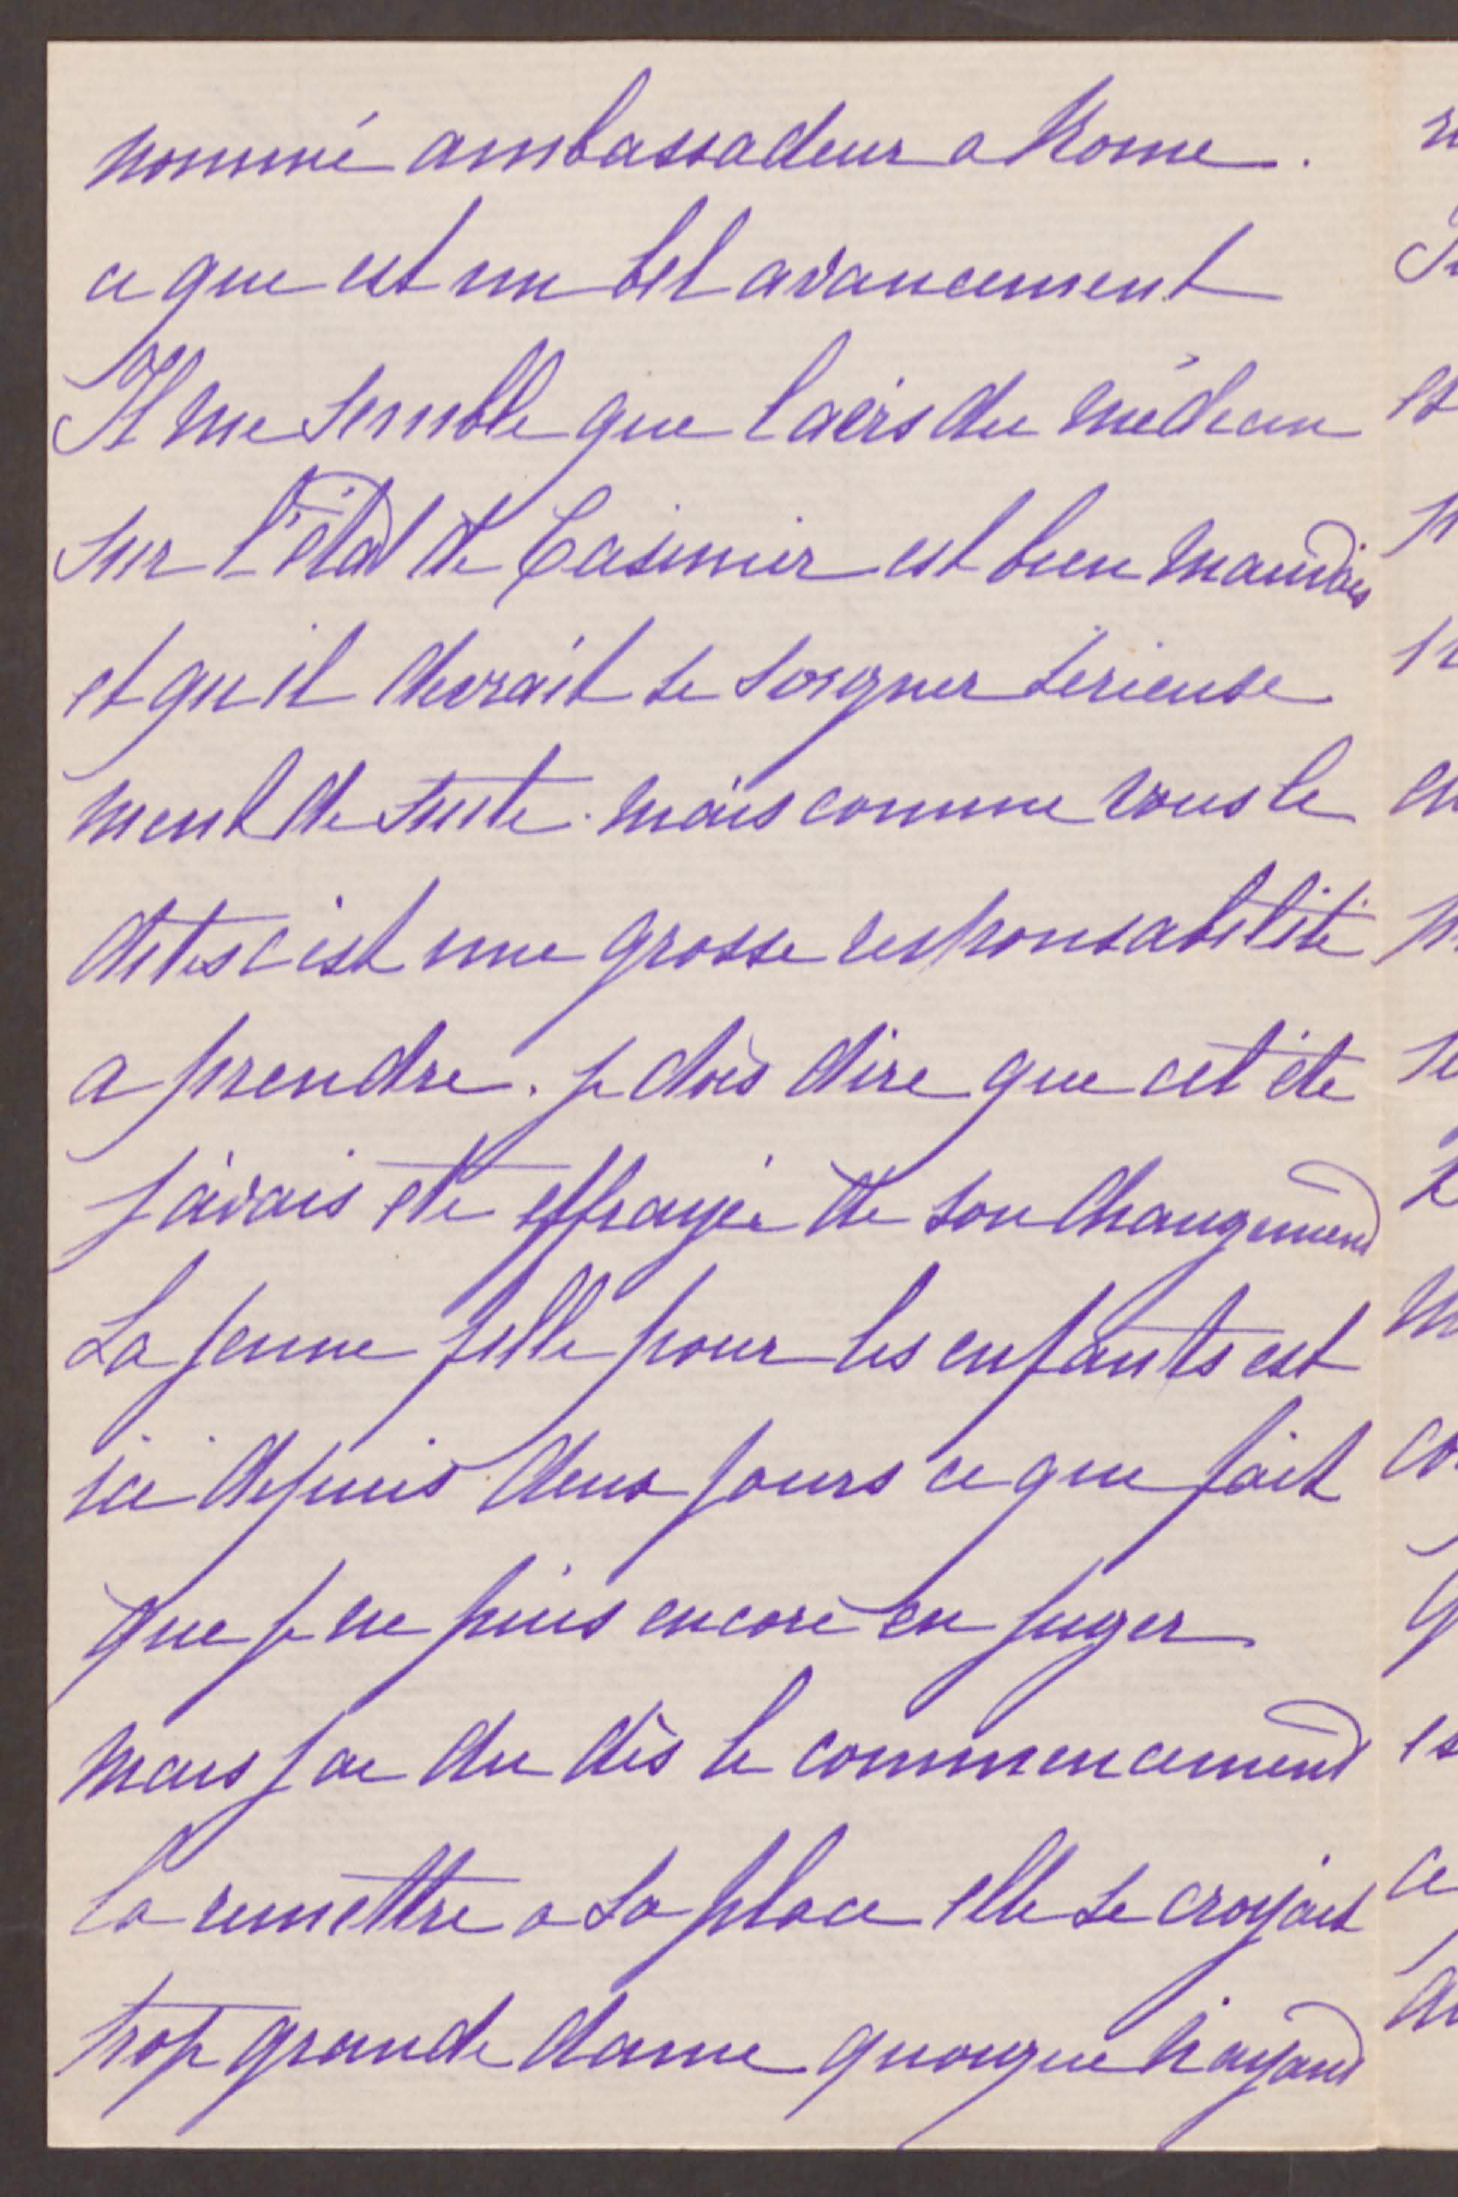 nommé ambassadeur a Rome.
ce que est un bel avancement
Il me semble que l'avis du médecin
sur l'état de Casimir est bien mauvais
et qu'il devrait se soigner sérieuse
ment de suite. mais comme vous le
dites c'est une grosse responsabilité
a prendre. je dois dire que cet été
j'avais été effrayée de son changement
La jeune fille pour les enfants est
ici depuis deux jours ce que fait
que je ne puis encore en juger
mais j'ai du dès le commencement
la remettre a sa place elle se croyait
trop grande dame quoique n'ayant